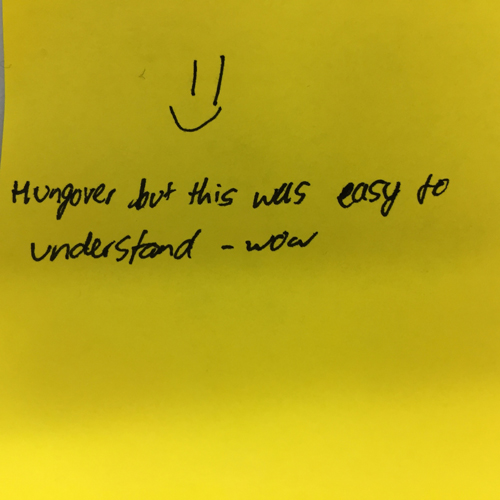 Hungover but this was easy to
understand - wow